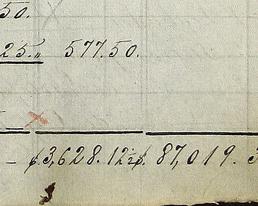 50.
25. 577.50.
- $3,628.12½ $. 87,019. 3